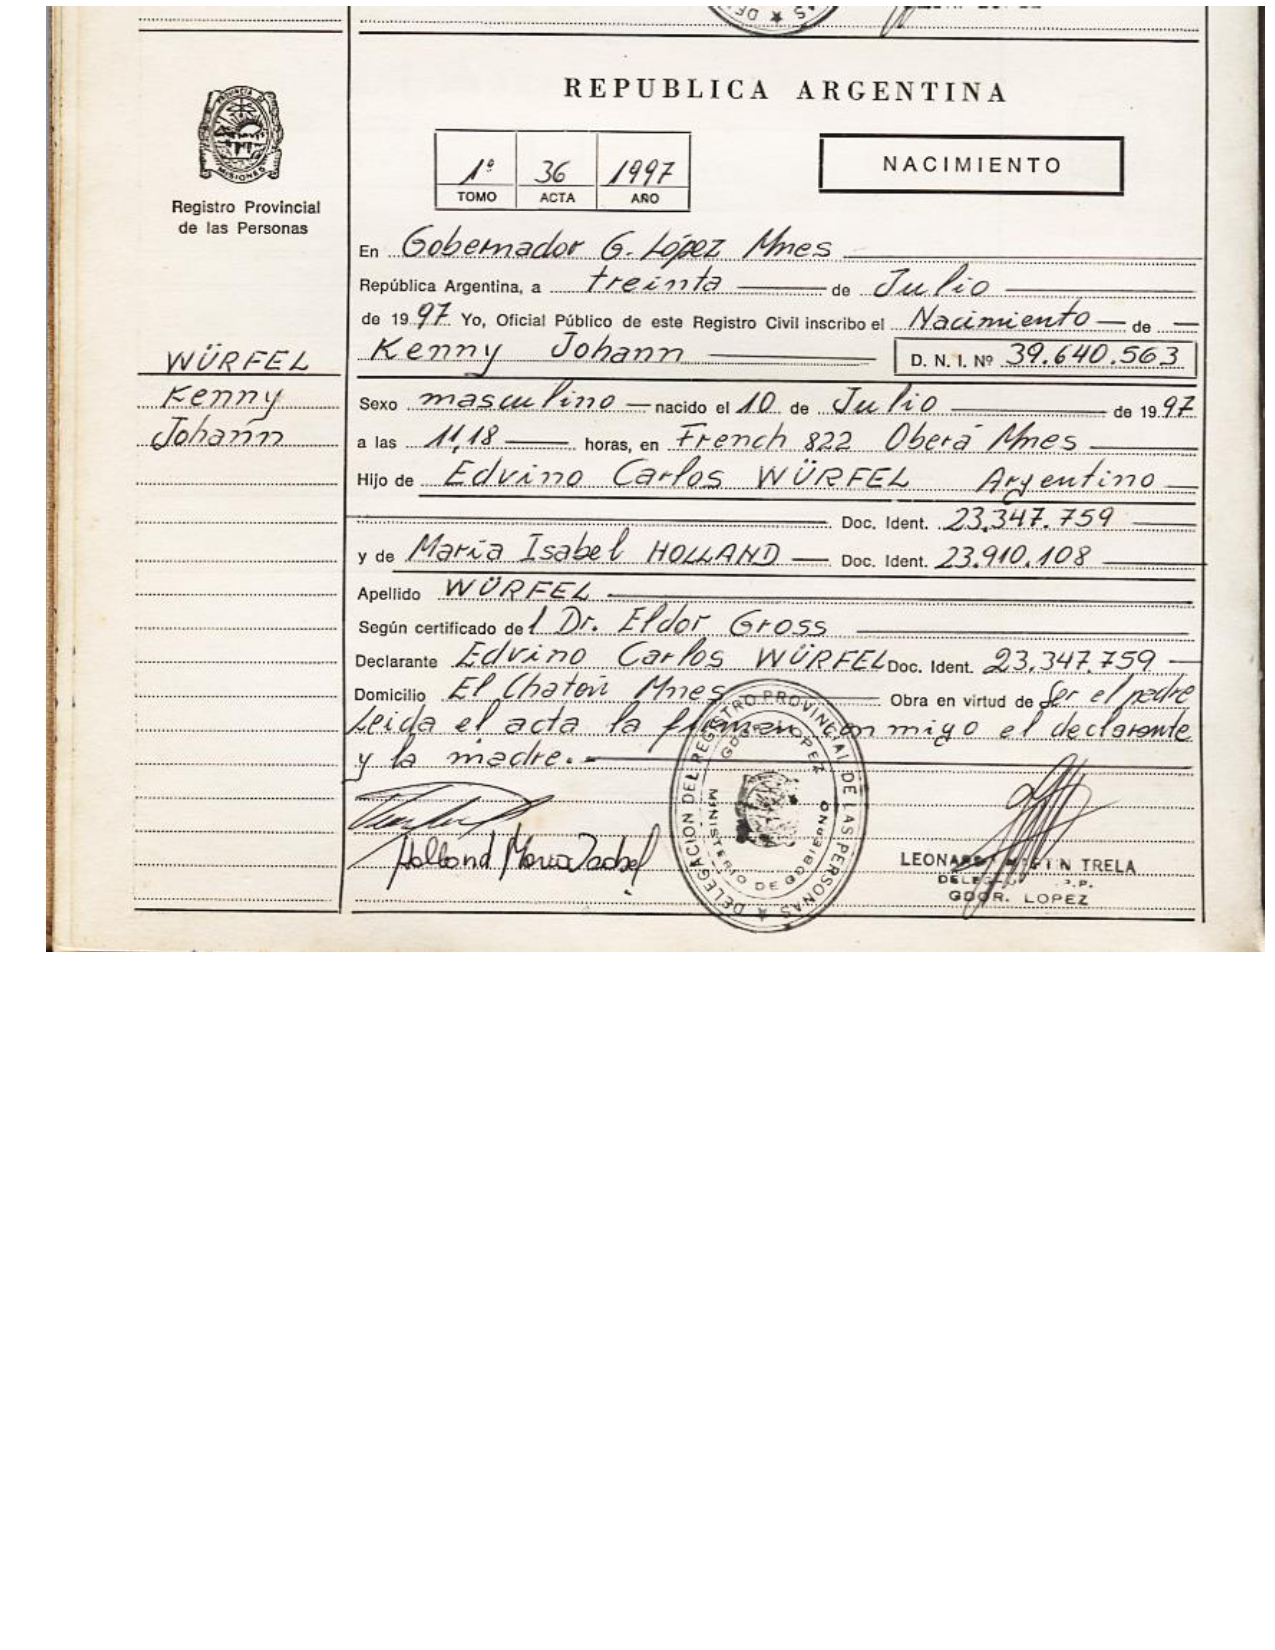 REPUBLICA ARGENTINA
PROVINCIA DE
MISIONES
Registro Provincial
de las Personas
1º 36 1997
TOMO ACTA AÑO
NACIMIENTO
En Gobernador G. López Mnes
República Argentina, a treinta de Julio
de 1997 Yo, Oficial Público de este Registro Civil inscribo el Nacimiento de
Kenny Johann D. N. I. Nº 39.640.563
WÜRFEL
Kenny
Johann
Sexo masculino nacido el 10 de Julio de 1997
a las 11,18 horas, en French 822 Oberá Mnes
Hijo de Edvino Carlos WÜRFEL Argentino
Doc. Ident. 23.347.759
y de María Isabel HOLLAND Doc. Ident. 23.910.108
Apellido WÜRFEL
Según certificado del Dr. Eldor Gross
Declarante Edvino Carlos WÜRFEL Doc. Ident. 23.347.759
Domicilio El Chatón Mnes Obra en virtud de Ser el padre
Leida el acta la firman conmigo el declarante
y la madre.
Holland María Isabel
DELEGACION DEL REGISTRO PROVINCIAL DE LAS PERSONAS
GDOR. LOPEZ
MINISTERIO DE GOBIERNO
TRELA
GDOR. LOPEZ